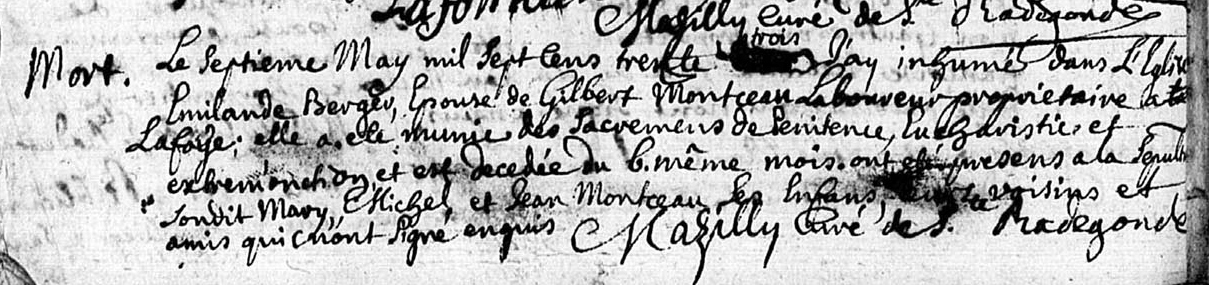 Lafon
Mazilly Curé de Ste Radegonde
Mort. Le septieme May mil sept cens trente trois J'ay inhumé dans L'Eglise
Emilande Berger, Epouse de Gilbert Montceau Laboureur propriétaire a la
Lafaye; elle a été munie des sacremens de penitence, Eucharistie, et
extremonction, et est decedée du 6. même mois. ont été presens a la sepult
sondit Mary, Michel, et Jean Montceau ses Enfans, voisins et
amis qui n'ont signé enquis Mazilly Curé de Ste Radegonde